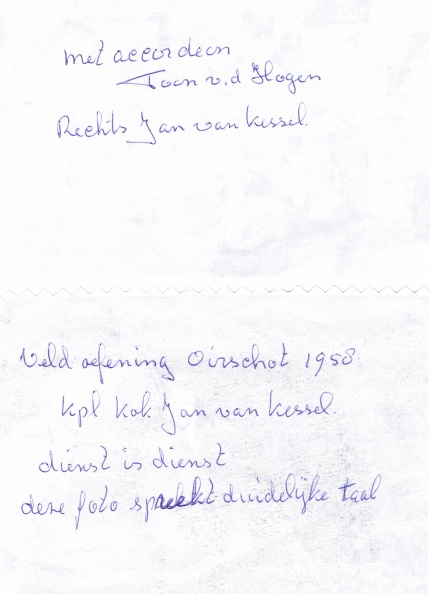 met accordeon
Toon v.d Hogen
Rechts Jan van Kessel.
Veld oefening Oirschot 1958
Kpl Kok Jan van Kessel.
dienst is dienst
deze foto spreekt duidelijke taal